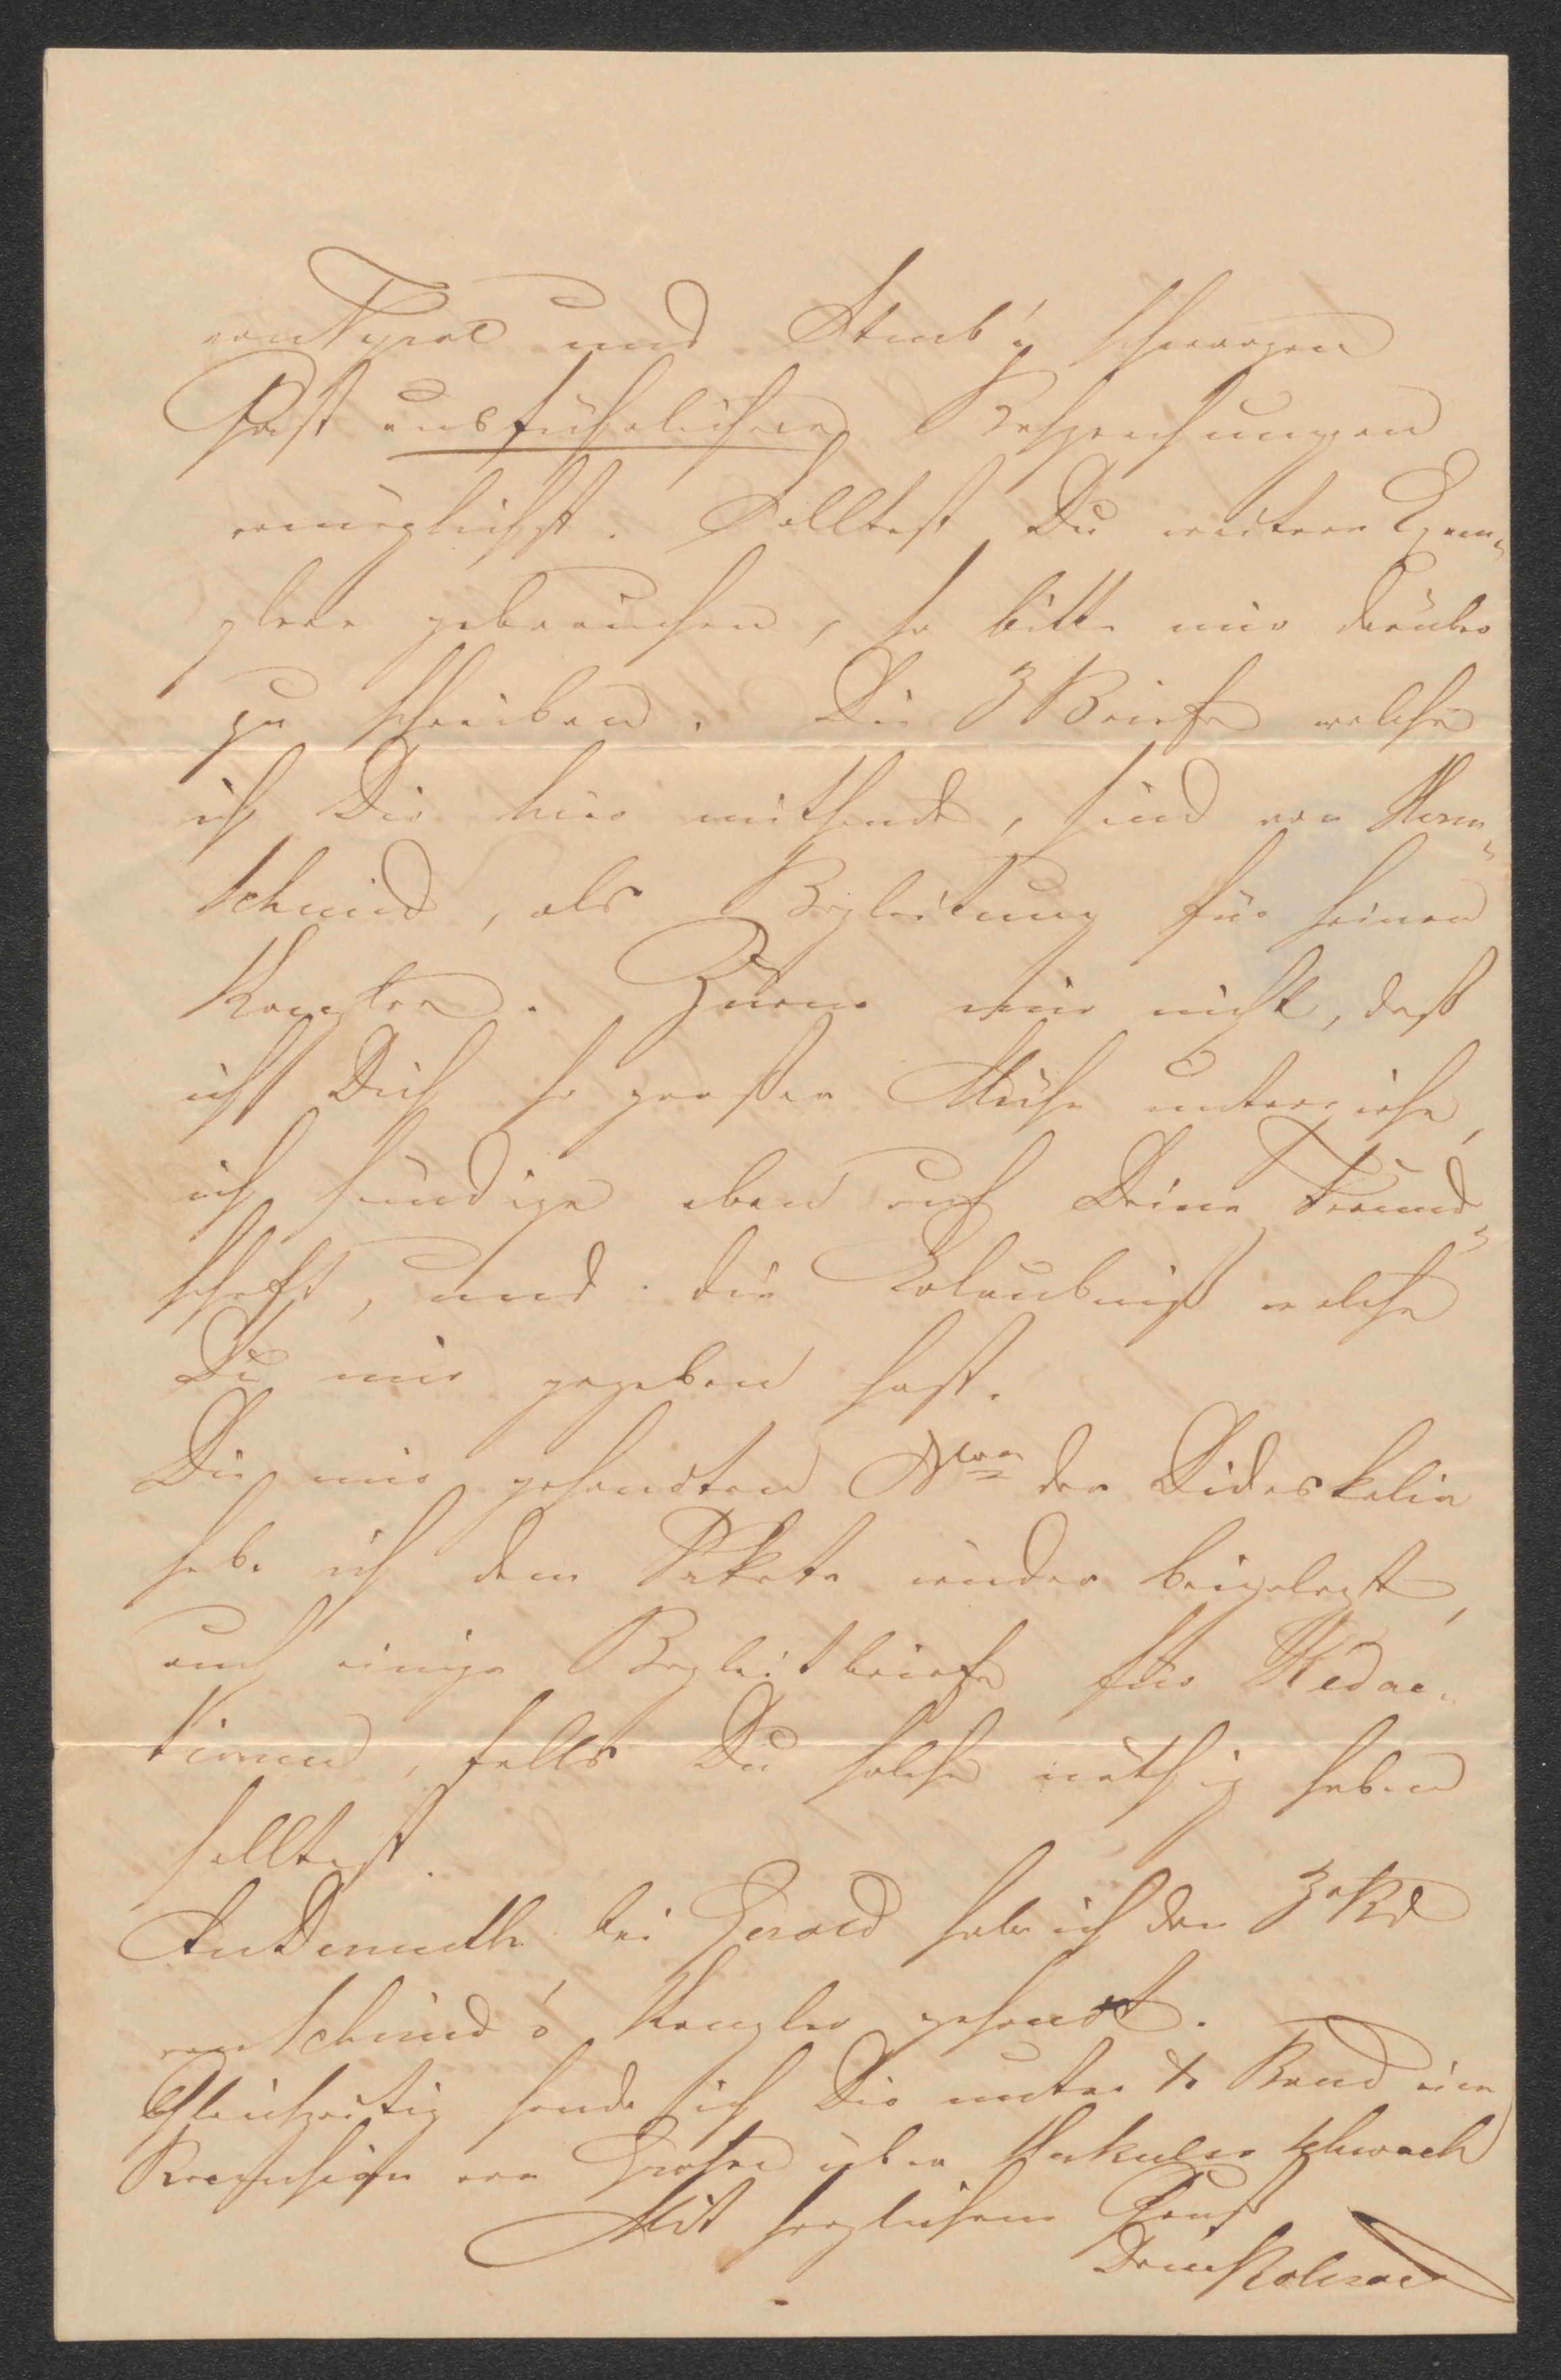 von Tyrol und Staub's schwarzen
Gast ausführlichere Besprechungen
ermöglichst. Solltest Du weitere Exem-
plare gebrauchen, so bitte mir darüber
zu schreiben. Die 3 Briefe welche
ich Dir hier mitsende, sind von Herm.
Schmid, als Begleitung für seinen
Kanzler. Zürne mir nicht, daß
ich Dich so großer Mühe unterziehe,
ich sündige eben auf Deine Freund-
schaft, und die Erlaubniß welche
Du mir gegeben hast.
Die mir gesandten Nrn der Didaskalia
habe ich dem Pakete wieder beigelegt,
auch einige Begleitbriefe für Redac-
tionen, falls Du solche nöthig haben
solltest.
An Demuth bei Gerold habe ich den 3n Bd
von Schmid's Kanzler gesandt.
Gleichzeitig sende ich Dir unter X Band eine
Recension von Grosse über Herkules schwach
Mit herzlichem Gruß
Dein